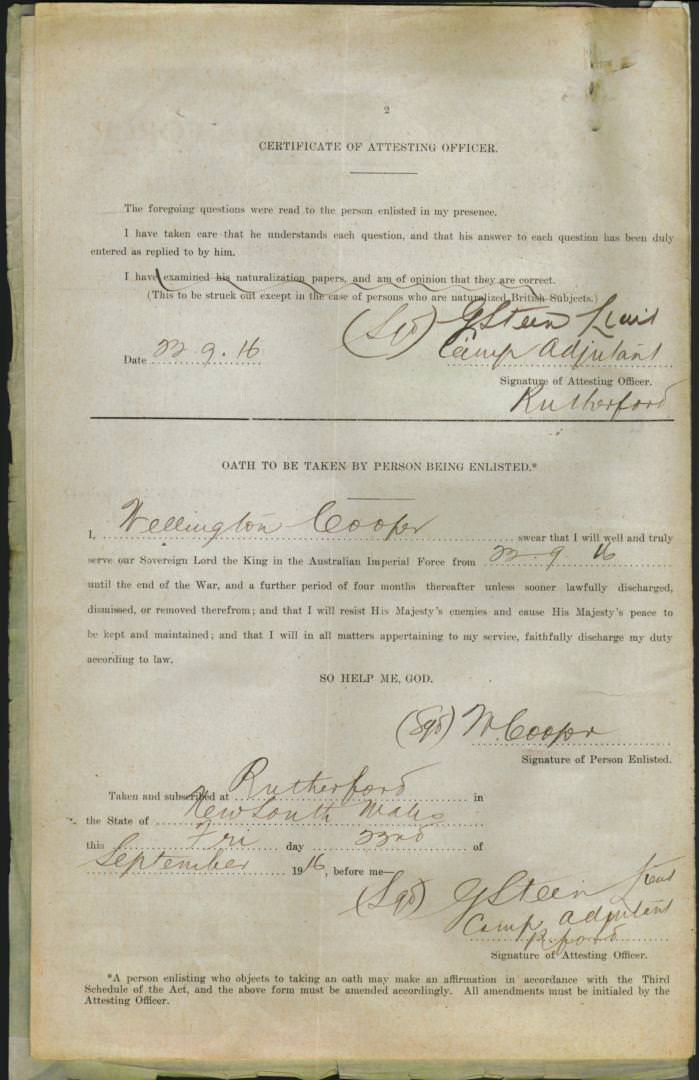 2
CERTIFICATE OF ATTESTING OFFICER.
The foregoing questions were read to the person enlisted in my presence.
I have taken care that he understands each question, and that his answer to each question has been duly
entered as replied to by him.
I have examined his naturalization papers, and am of opinion that they are correct.
(This to be struck out except in the case of persons who are naturalized British Subjects.)
(Sgd) G Stein Lieut
Date 22.9.16 Camp Adjutant
Signature of Attesting Officer.
Rutherford
OATH TO BE TAKEN BY PERSON BEING ENLISTED.*
I, Wellington Cooper swear that I will well and truly
serve our Sovereign Lord the King in the Australian Imperial Force from 22.9.16
until the end of the War, and a further period of four months thereafter unless sooner lawfully discharged,
dismissed, or removed therefrom; and that I will resist His Majesty's enemies and cause His Majesty's peace to
be kept and maintained; and that I will in all matters appertaining to my service, faithfully discharge my duty
according to law.
SO HELP ME, GOD.
(Sgd) W. Cooper
Signature of Person Enlisted.
Taken and subscribed at Rutherford in
the State of New South Wales
this Fri day 22nd of
September 1916, before me—
(Sgd) G Stein Lieut
Camp Adjutant
R.ford
Signature of Attesting Officer.
*A person enlisting who objects to taking an oath may make an affirmation in accordance with the Third
Schedule of the Act, and the above form must be amended accordingly. All amendments must be initialed by the
Attesting Officer.